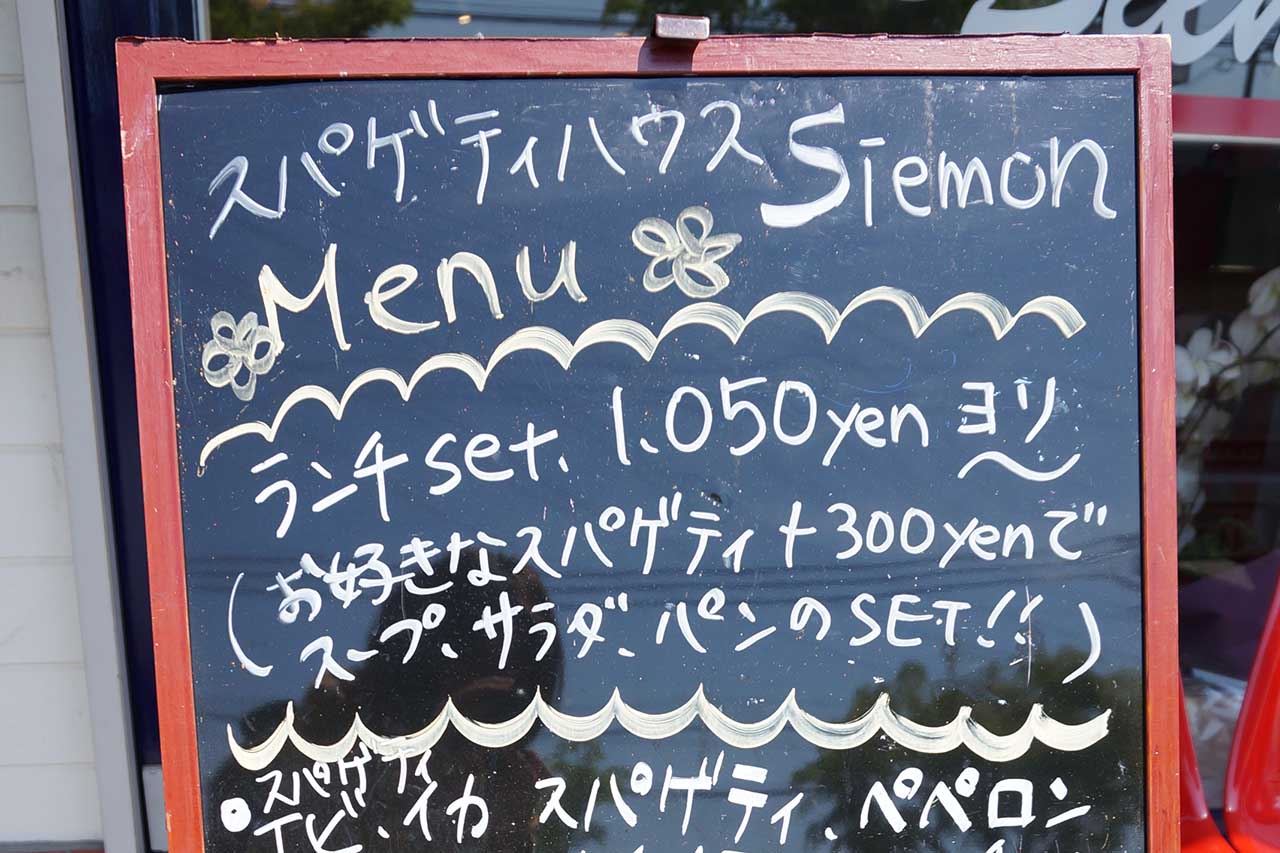 スパゲティハウス Siemon
Menu
ランチset. 1.050yen ヨリ
(お好きなスパゲティ+300yenで
スープ、サラダ、パンのSET!!)
スパゲティ
●エビ、イカ スパゲティ、ペペロン